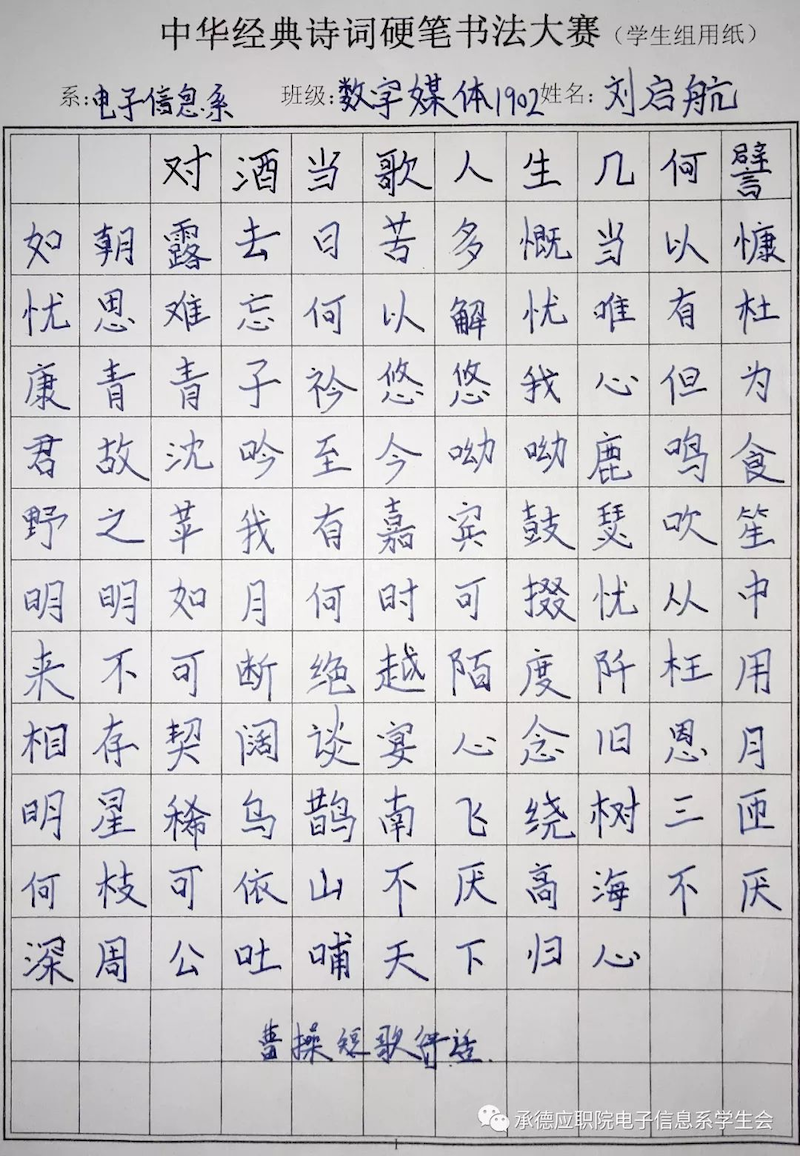 中华经典诗词硬笔书法大赛（学生组用纸）
系:电子信息系 班级:数字媒体1902 姓名:刘启航
对酒当歌人生几何譬
如朝露去日苦多慨当以慷
忧思难忘何以解忧唯有杜
康青青子衿悠悠我心但为
君故沈吟至今呦呦鹿鸣食
野之苹我有嘉宾鼓瑟吹笙
明明如月何时可掇忧从中
来不可断绝越陌度阡枉用
相存契阔谈宴心念旧恩月
明星稀乌鹊南飞绕树三匝
何枝可依山不厌高海不厌
深周公吐哺天下归心
曹操短歌行
承德应职院电子信息系学生会